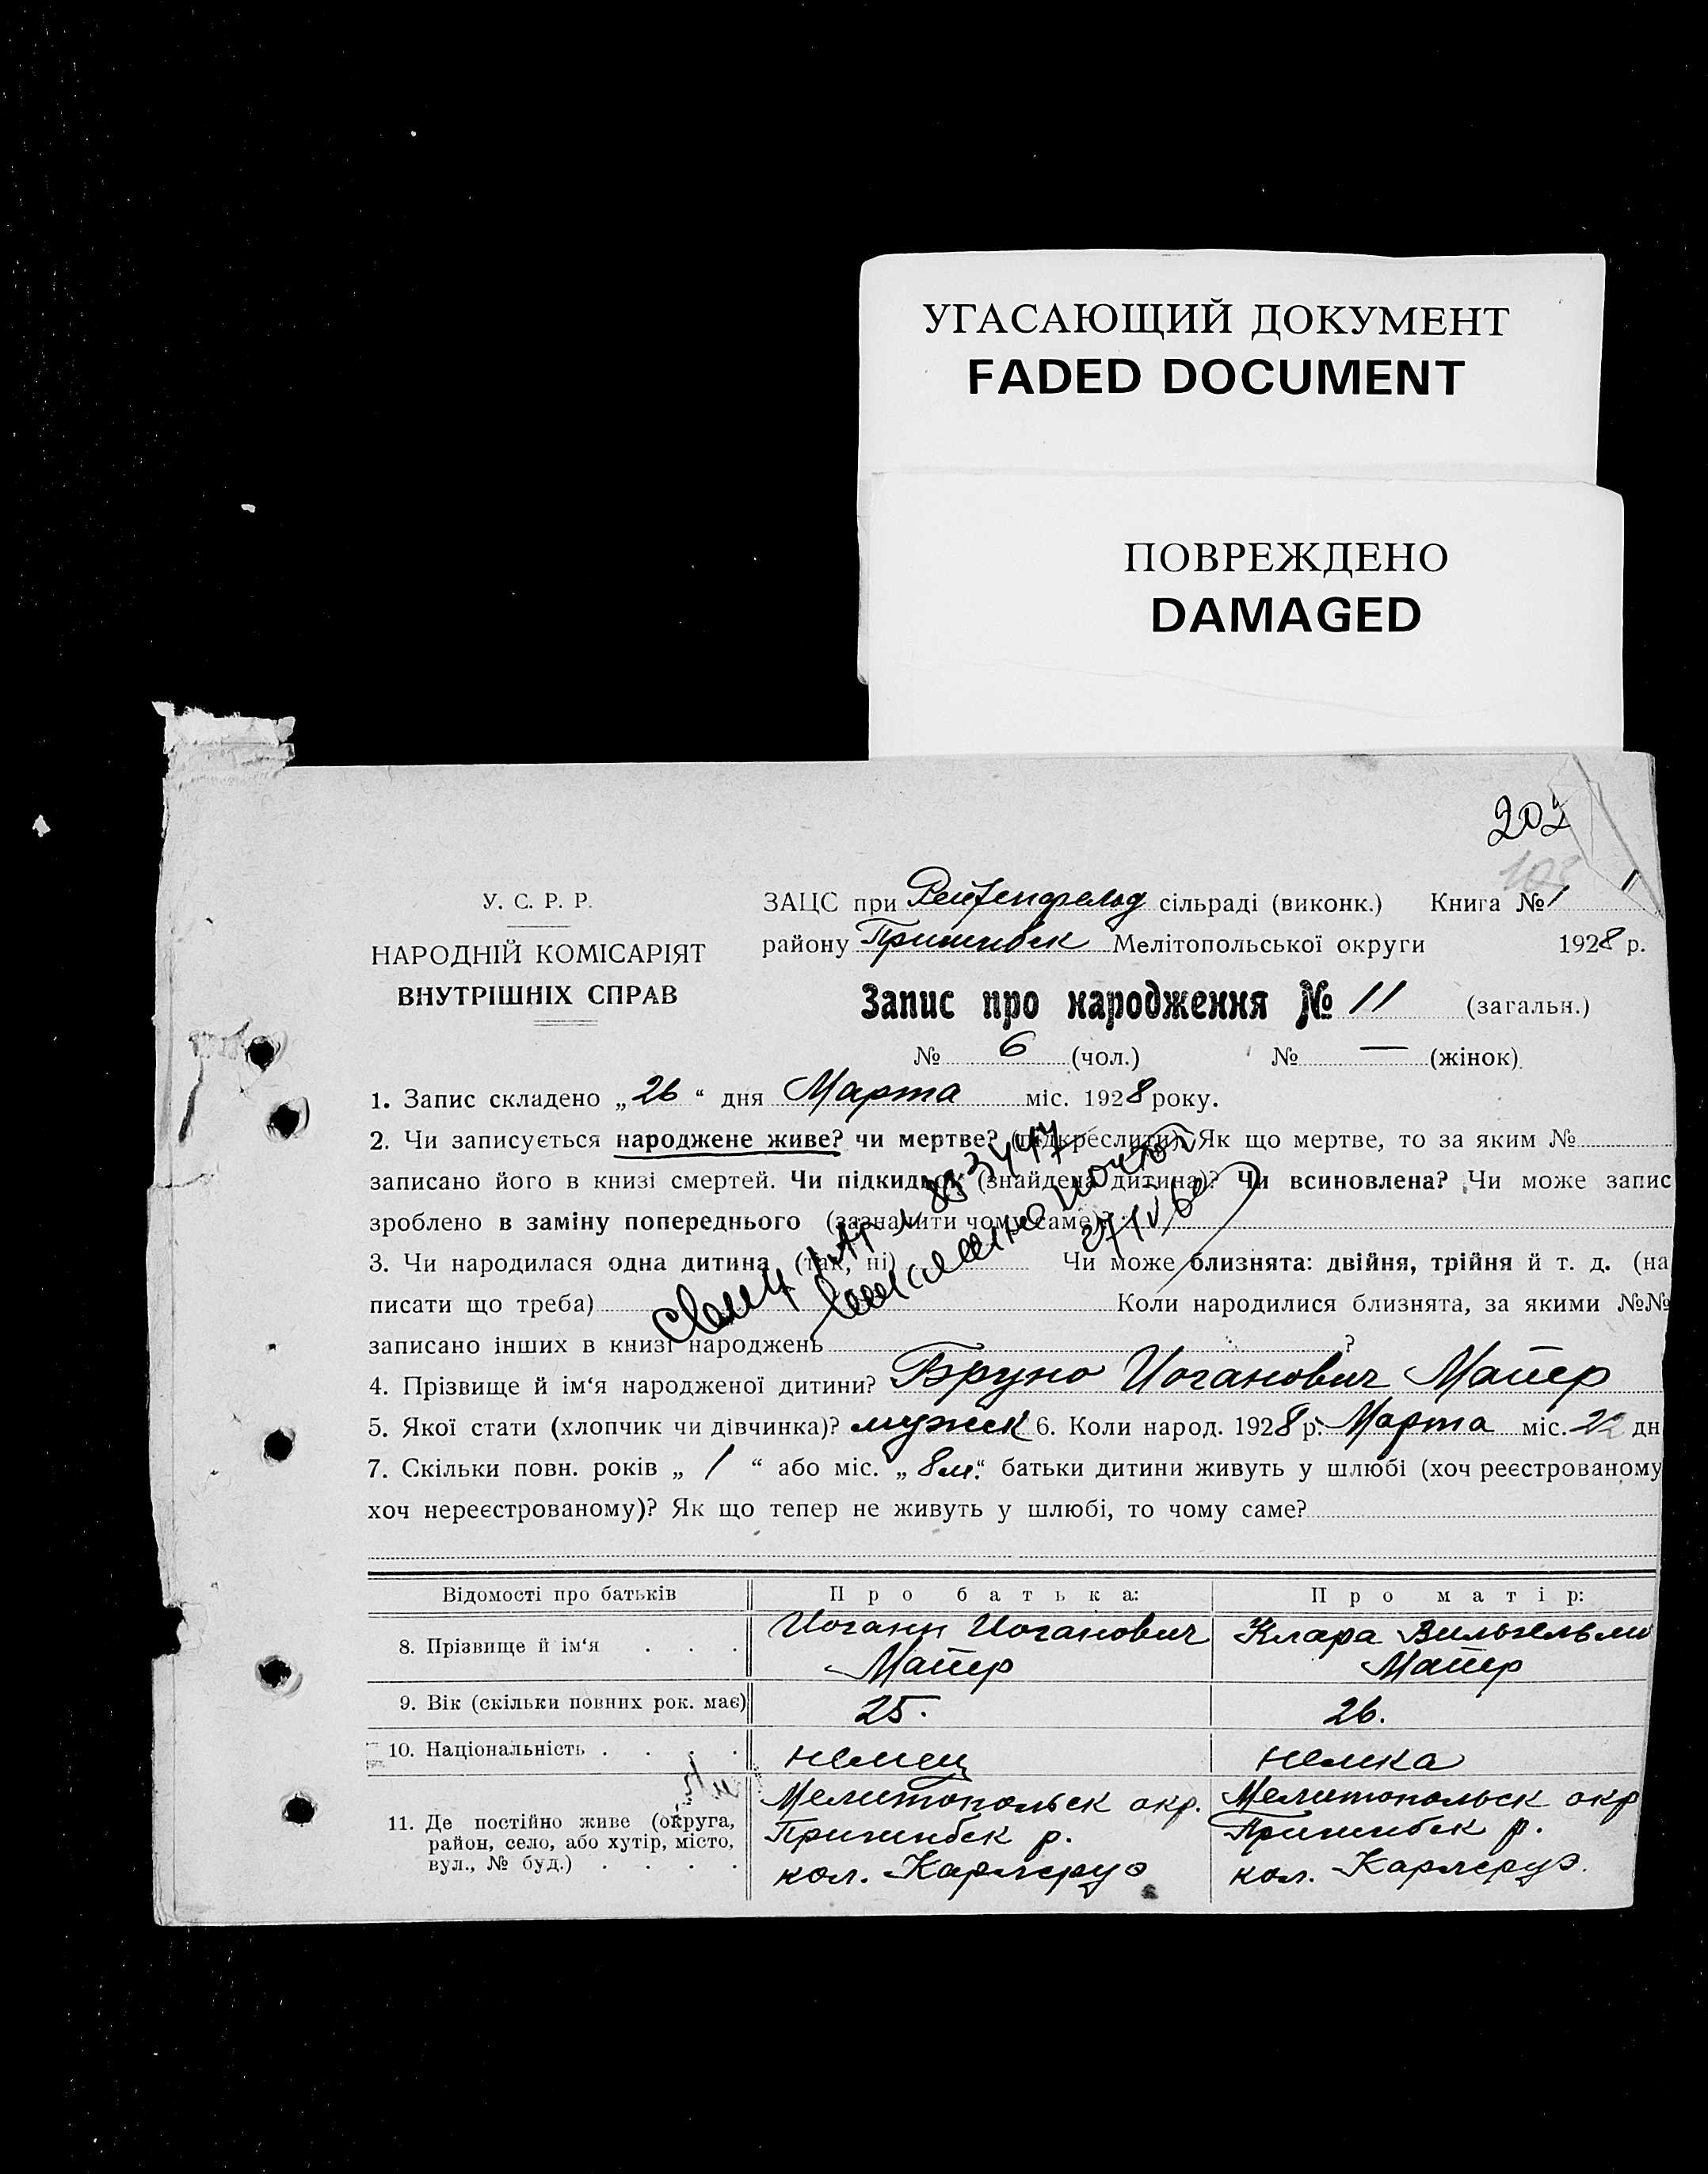 УГАСАЮЩИЙ ДОКУМЕНТ
FADED DOCUMENT
ПОВРЕЖДЕНО
DAMAGED
202
103
У. С. Р. Р.
НАРОДНІЙ КОМІСАРІЯТ
ВНУТРІШНІХ СПРАВ
ЗАЦС при Рейхенфельд сільраді (виконк.) Книга № 1
району Пришибск Мелітопольської округи 1928 р.
Запис про народження № 11 (загальн.)
№ 6 (чол.) № — (жінок)
1. Запис складено „26“ дня Марта міс. 1928 року.
2. Чи записується народжене живе? чи мертве? (підкреслити). Як що мертве, то за яким №
записано його в книзі смертей. Чи підкидьок (знайдена дитина)? Чи всиновлена? Чи може запис
зроблено в заміну попереднього (зазначити чому саме)?
3. Чи народилася одна дитина (так, ні) Чи може близнята: двійня, трійня й т. д. (на
писати що треба) Коли народилися близнята, за якими №№
записано інших в книзі народжень ?
4. Прізвище й ім‘я народженої дитини? Бруно Иоганович Майер
5. Якої стати (хлопчик чи дівчинка)? мужск 6. Коли народ. 1928 р. Марта міс. 22 дн
7. Скільки повн. років „ 1 “ або міс. „ 8 м.“ батьки дитини живуть у шлюбі (хоч реєстрованому
хоч нереєстрованому)? Як що тепер не живуть у шлюбі, то чому саме?
Відомості про батьків Про батька: Про матір:
8. Прізвище й ім‘я . . . Иоганн Иоганович Клара Вильгельми
Майер Майер
9. Вік (скільки повних рок. має) 25. 26.
10. Національність . . . . немец немка
11. Де постійно живе (округа, район, село, або хутір, місто, вул., № буд.) . . . . Мелитопольск окр. Мелитопольск окр
Пришибск р. Пришибск р.
кол. Карлсруэ кол. Карлсруэ.